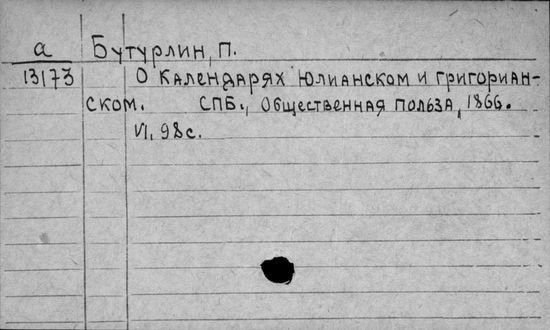 а Бутурлин, П.
13173 О календарях юлианском и григориан-
ском. СПБ., Общественная польза, 1866.
VI, 98 с.